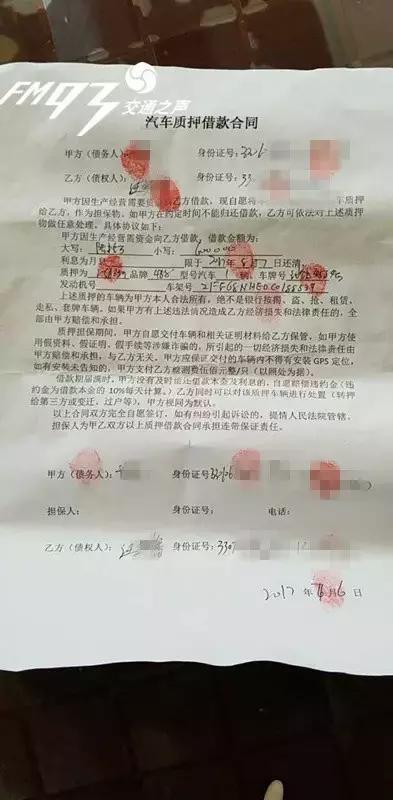 FM93
交通之声
汽车质押借款合同
甲方（债务人）： 身份证号：
乙方（债权人）： 身份证号：33
甲方因生产经营需要 乙方借款，现自愿将 车质押
给乙方，作为担保物。如甲方在约定时间不能归还借款，乙方可依法对上述质押
物做任意处理。具体协议如下：
甲方因生产经营需资金向乙方借款 借款金额为：
大写： 小写：
利息为月 限于 2017 日还清
质押为 品牌 型号汽车 辆，车牌号
发动机号 车架号
上述质押的车辆为甲方本人合法所有，绝不是银行按揭、盗、抢、租赁、
走私、套牌车辆，如果甲方有上述违法情况造成乙方经济损失和法律责任的，全
部由甲方赔偿和承担。
质押担保期间，甲方自愿交付车辆和相关证明材料给乙方保管，如甲方使
用假资料、假证明、假手续等涉嫌诈骗的，所引起的一切经济损失和法律责任由
甲方赔偿和承担，与乙方无关。甲方应保证交付的车辆内不得有安装 GPS 定位，
如有安装未告知的，甲方支付乙方检测费伍佰元整/只（以照处为据）。
借款期届满时，甲方没有及时偿还借款本金及利息的，自愿赔偿违约金（违
约金为借款本金的 10%每天计算。）乙方同时可以对该质押车辆进行处置（转押
给第三方或变迁、过户等），甲方视同为默认。
以上合同双方完全自愿签订，如有纠纷引起诉讼的，提情人民法院管辖。
担保人为甲乙双方以上质押借款合同承担连带保证责任。
甲方（债务人）： 身份证号：
担保人： 身份证号： 电话：
乙方（债权人）： 身份证号：330
2017 年 月 6 日